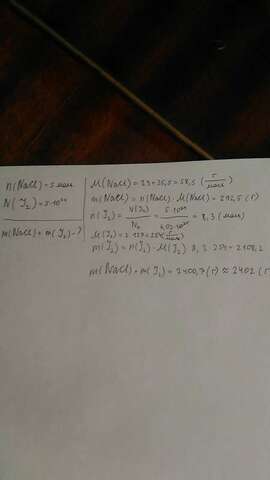 n(NaCl) = 5 моль
N(J₂) = 5·10²⁴
m(NaCl) + m(J₂) - ?
M(NaCl) = 23+35,5 = 58,5 (г/моль)
m(NaCl) = n(NaCl) · M(NaCl) = 292,5 (г)
n(J₂) = N(J₂)/Nₐ = 5·10²⁴/6,02·10²³ = 8,3 (моль)
M(J₂) = 2·127 = 254 (г/моль)
m(J₂) = n(J₂) · M(J₂) 8,3·254 = 2108,2
m(NaCl) + m(J₂) = 2400,7 (г) ≈ 2402 (г